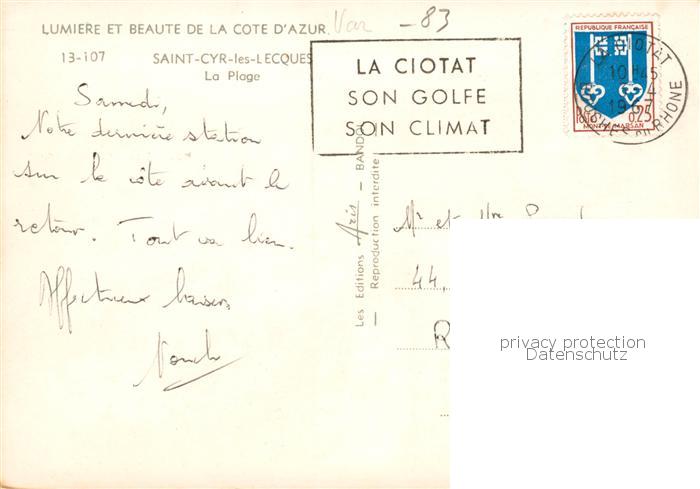 LUMIERE ET BEAUTE DE LA COTE D'AZUR
Var - 83
13-107 SAINT-CYR-les-LECQUES
La Plage
LA CIOTAT
SON GOLFE
SON CLIMAT
REPUBLIQUE FRANÇAISE
0,25
MONT-DE-MARSAN
LA CIOTAT
10 H 45
1967
RHONE
Samedi,
Notre dernière station
sur la côte avant le
retour. Tout va bien.
Affectueux baisers
Les Editions Aris - BANDOL
- Reproduction interdite -
Mr et Mme
44,
R
privacy protection
Datenschutz